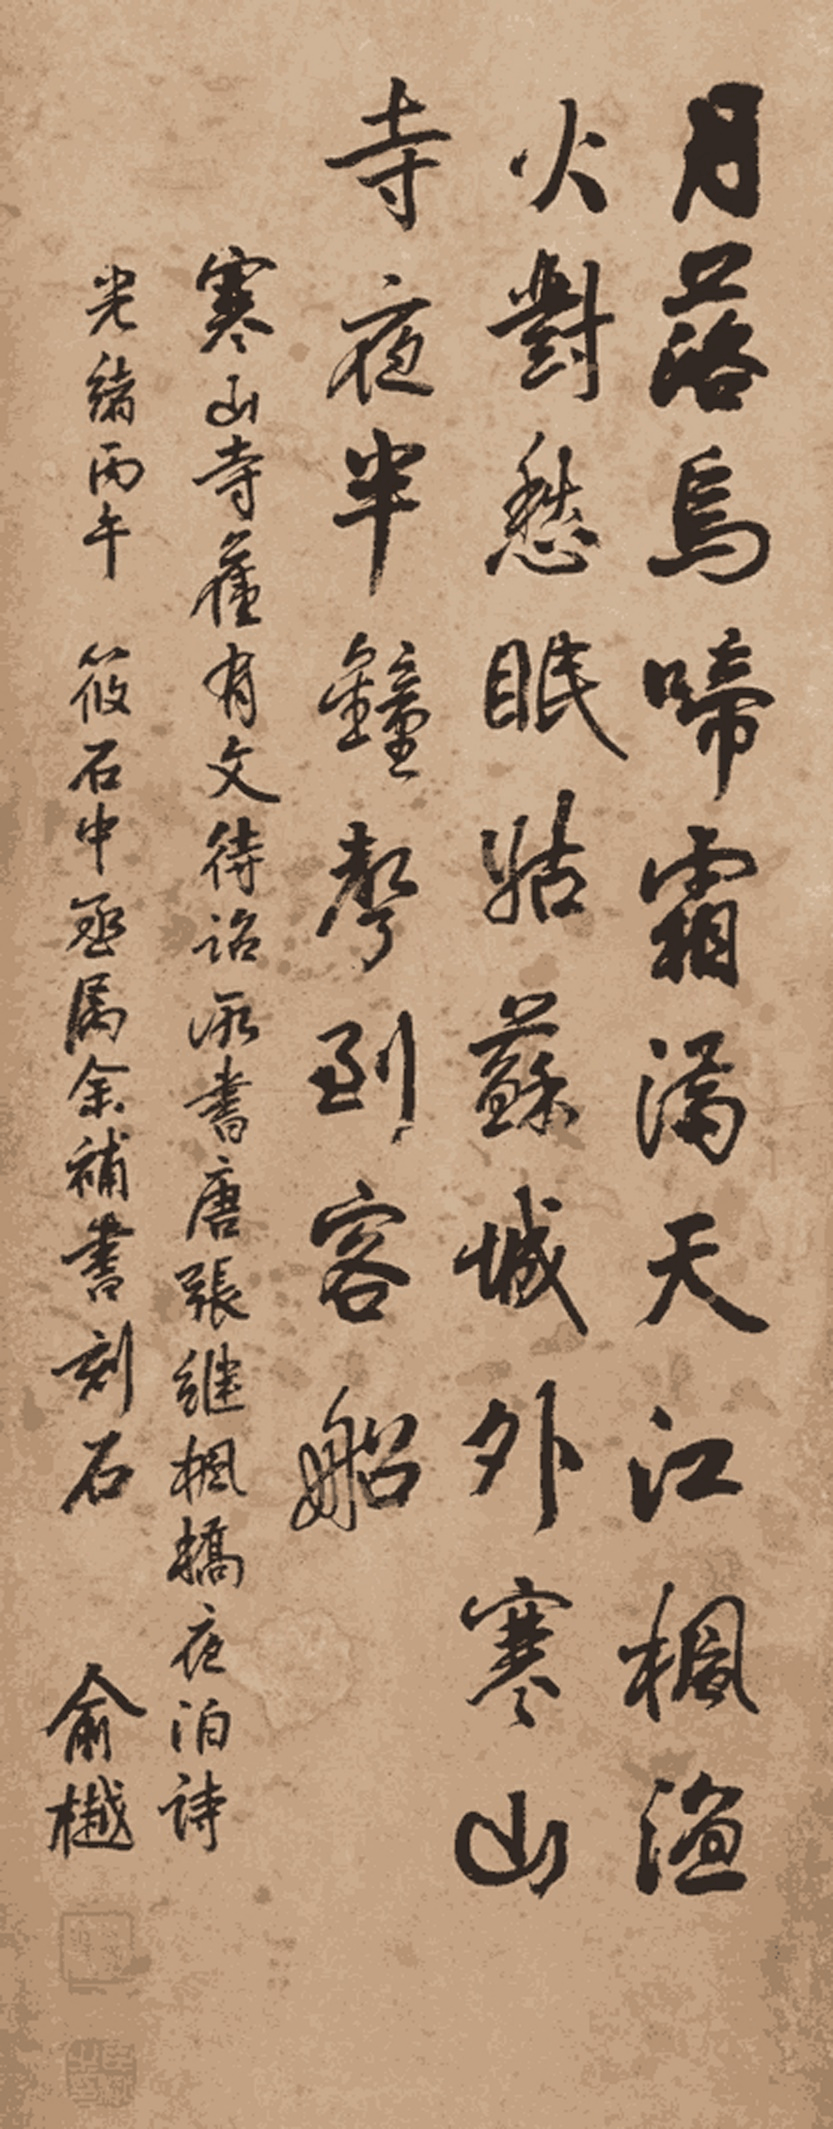 月落烏啼霜滿天江楓漁
火對愁眠姑蘇城外寒山
寺夜半鐘聲到客船
寒山寺舊有文待詔所書唐張継楓橋夜泊詩
光緒丙午 筱石中丞属余補書刻石 俞樾